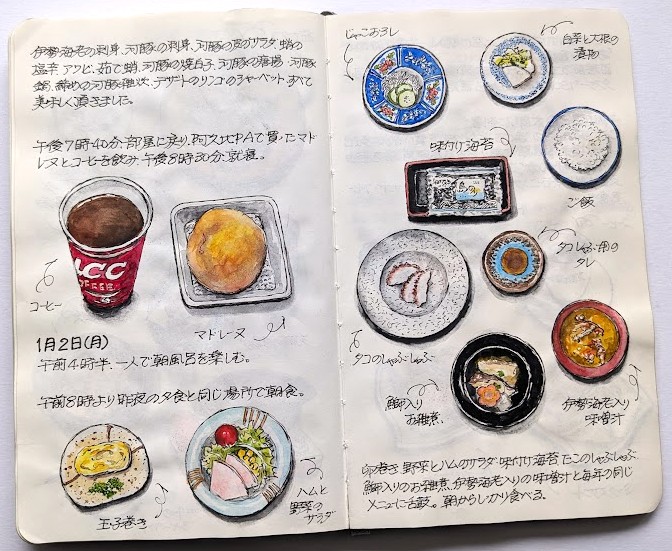 伊勢海老の刺身、河豚の刺身、河豚の皮のサラダ、蛸の
塩辛、アワビ、茹で蛸、河豚の焼白子、河豚の唐揚、河豚
鍋、締めの河豚雑炊、デザートのリンゴのシャーベット、すべて
美味しく頂きました。
午後7時40分、部屋に戻り、阿久比PAで買ったマド
レーヌとコーヒーを飲み、午後8時30分、就寝。
ACC
COFFEE
コーヒー
マドレーヌ
1月2日(月)
午前4時半、一人で朝風呂を楽しむ。
午前8時より昨夜の夕食と同じ場所で朝食。
玉子巻き
ハムと
野菜の
サラダ
じゃこおろし
白菜と大根の
漬物
味付け海苔
ご飯
タコしゃぶ用の
タレ
タコのしゃぶしゃぶ
鰤入り
お雑煮
伊勢海老入り
味噌汁
卵巻き 野菜とハムのサラダ・味付け海苔 たこのしゃぶしゃぶ
鰤入りのお雑煮、伊勢海老入りの味噌汁と毎年の同じ
メニューに舌鼓。朝からしっかり食べる。